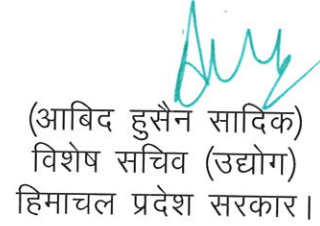 (आबिद हुसैन सादिक)
विशेष सचिव (उद्योग)
हिमाचल प्रदेश सरकार।